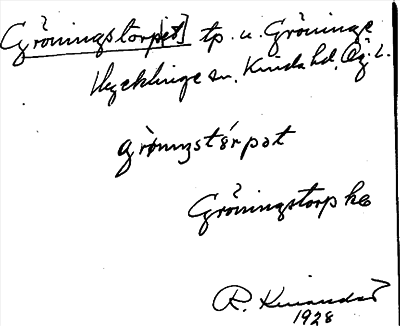 Gröningstorp[et] tp. u. Gröninge
Hycklinge sn. Kinda hd. Ög. l.
grönigstórpət
Gröningstorp kb
R. Kinander
1928